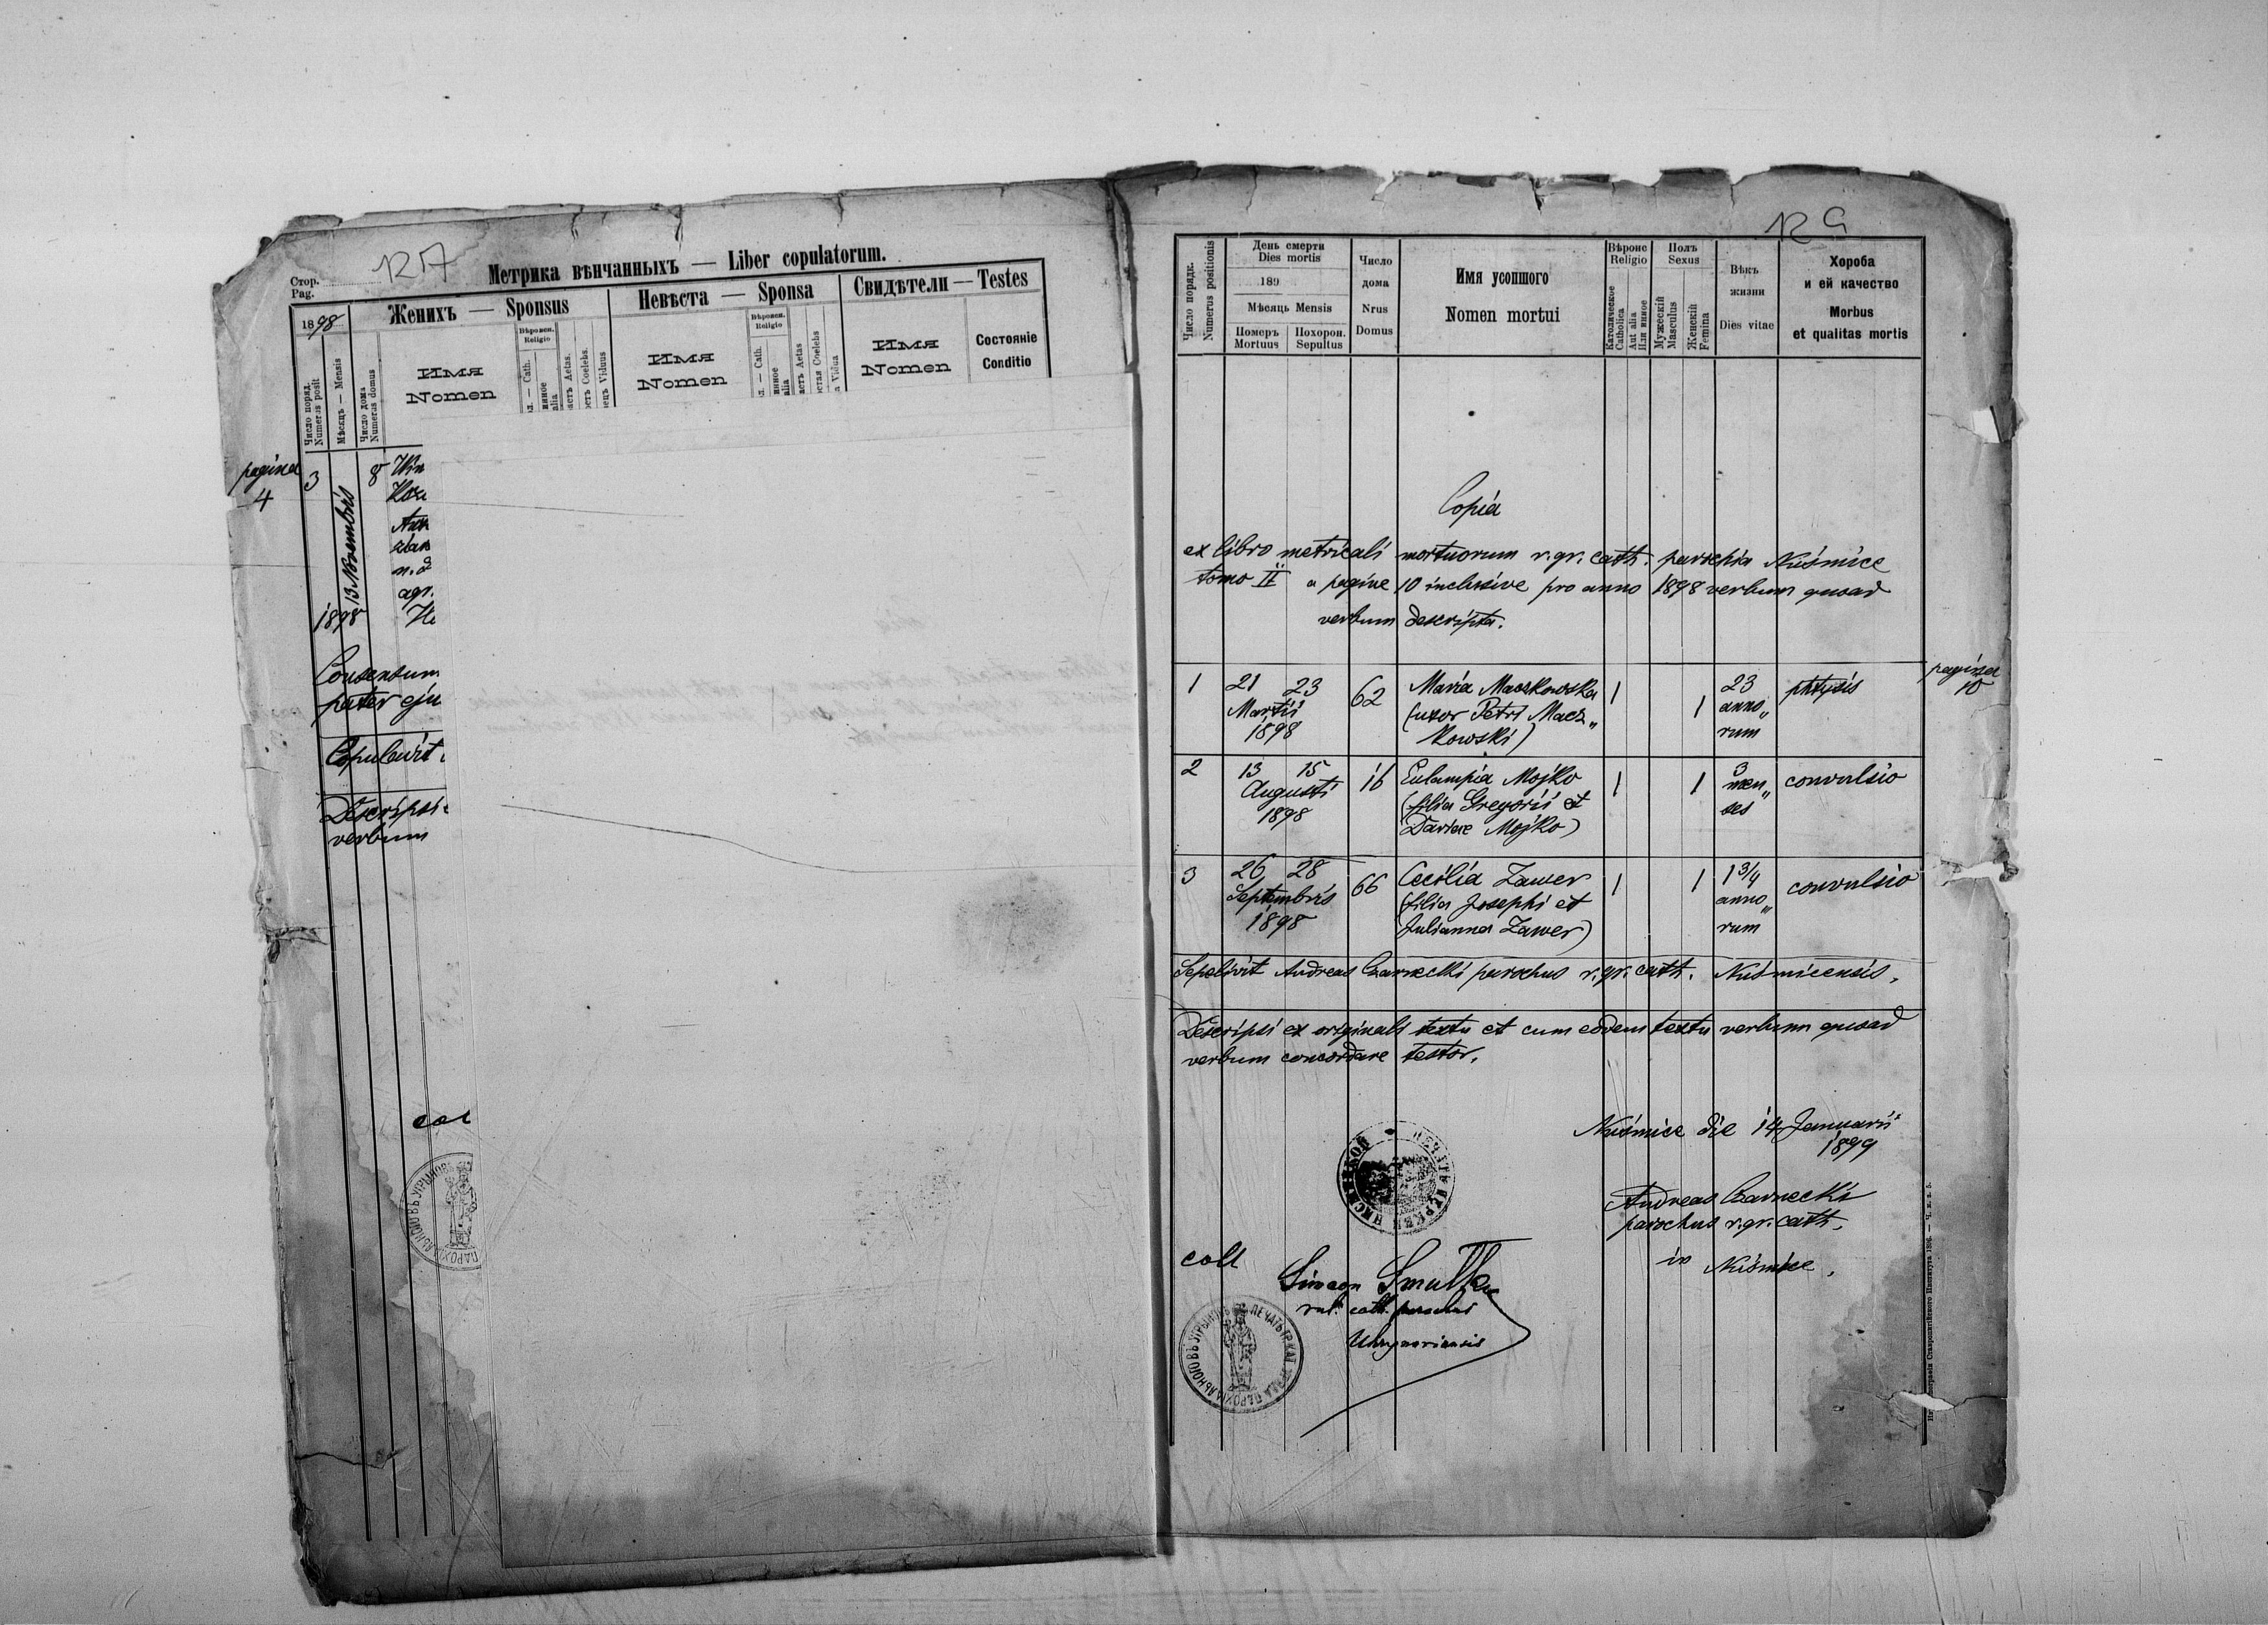 Стор.
Pag.
Метрика вѣнчанныхъ — Liber copulatorum.
1898
Женихъ — Sponsus
Невѣста — Sponsa
Свидѣтели — Testes
Число поряд.
Numerus posit
Мѣсяцъ — Mensis
Число дома
Numerus domus
Имя
Nomen
Вѣроисп.
Religio
Имя
Nomen
Вѣроисп.
Religio
Имя
Nomen
Состояніе
Conditio
pagina
4
3
13. Novembris
1898
8
agr.
Consensum
pater eju
Copulavit
Descripsi
verbum
col
Число порядк.
Numerus positionis
День смерти
Dies mortis
189
Мѣсяць Mensis
Померъ
Mortuus
Похорон.
Sepultus
Число
дома
Nrus
Domus
Имя усопшого
Nomen mortui
Вѣроис
Religio
Католическое
Catholica
Aut alia
Или иное
Полъ
Sexus
Мужескій
Masculus
Женскій
Femina
Вѣкъ
жизни
Dies vitae
Хороба
и ей качество
Morbus
et qualitas mortis
Copia
ex libro metricali mortuorum r. gr. cath. parochia Nuśmice
tomo II a pagine 10 inclusive pro anno 1898 verbum quoad
verbum descripta.
pagina
10
1 21 23 62 Maria Maczkowska 1 1 23 phtysis
Martii (uxor Petri Macz„ anno„
1898 kowski) rum
2 13 15 16 Eulampia Mojko 1 1 3 convulsio
Augusti (filia Gregorii et men„
1898 Dariae Mojko) ses
3 26 28 66 Cecilia Zawer 1 1 1 3/4 convulsio
Septembris (filia Josephi et anno„
1898 Julianna Zawer) rum
Sepelivit Andreas Czarnecki parochus r. gr. cath. Nuśmicensis.
Descripsi ex originali textu et cum eodem textu verbum quoad
verbum concordare testor.
Nuśmice die 14 Januarii
1899
Andreas Czarnecki
parochus r. gr. cath.
in Nuśmice.
coll
Simeon
cath. parochus
Uhrynoviensis